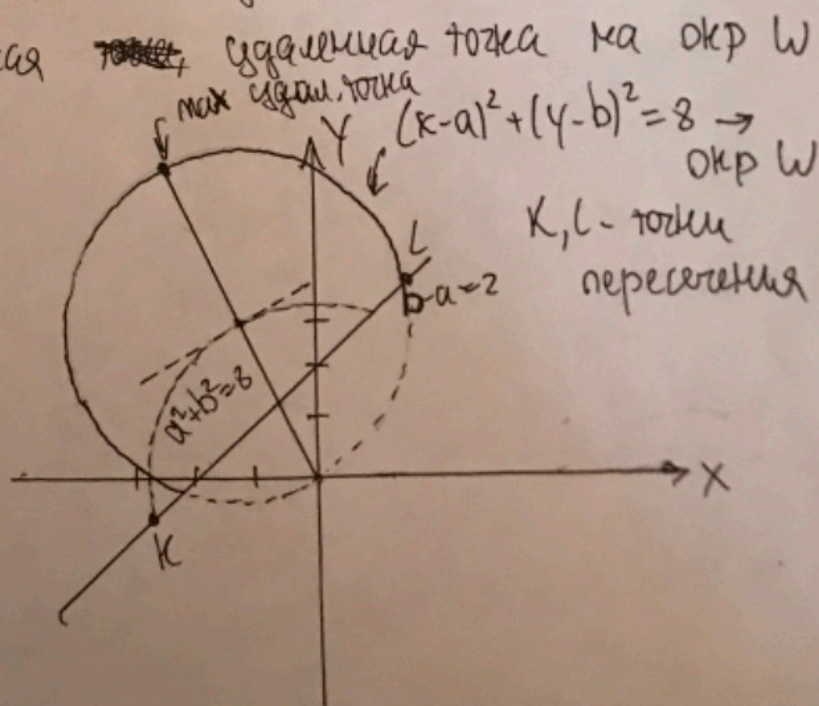 кая удаленная точка на окр W
max удал. точка
Y (x-a)²+(y-b)²=8 →
окр W
K, L - точки
пересечения
L
b-a=2
a²+b²=8
X
K